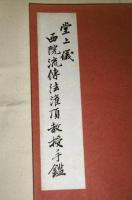 堂上儀
西院流傳法灌頂教授手鑑